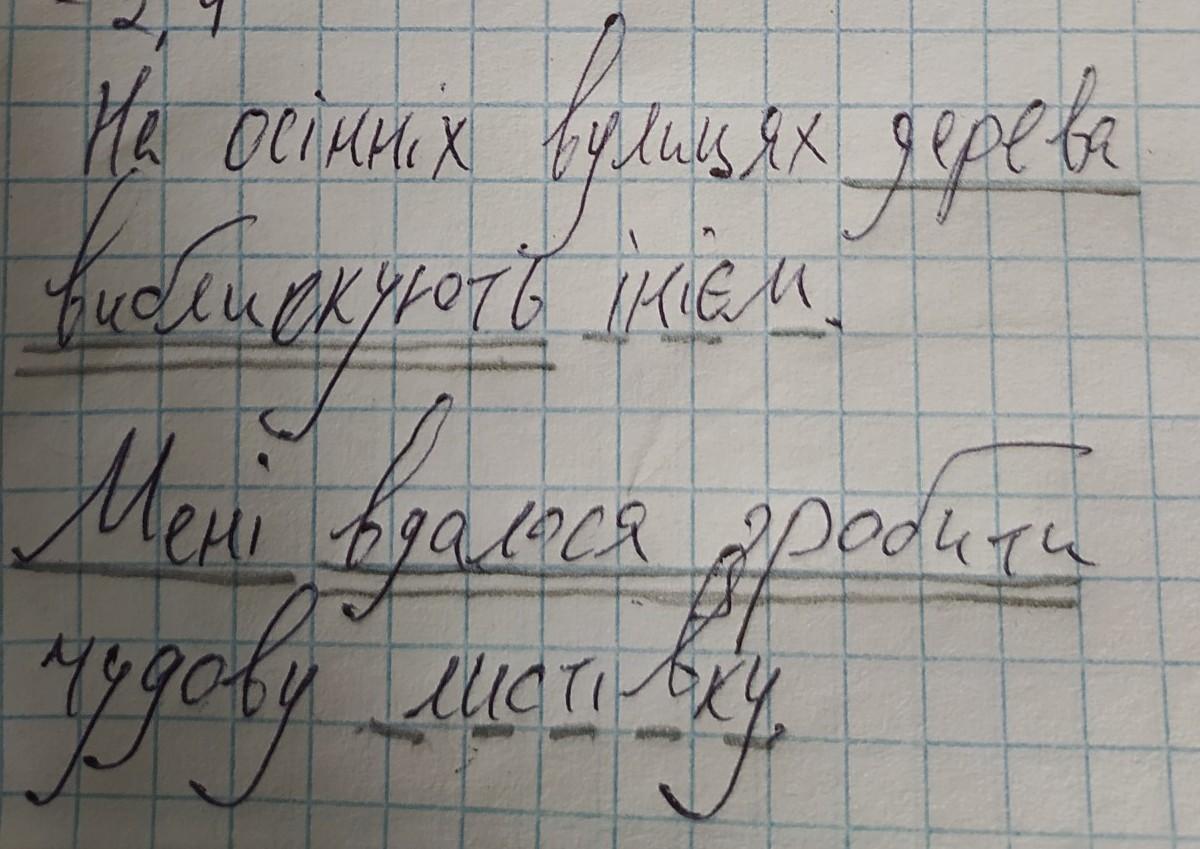 На осінніх вулицях дерева
виблискують інієм.
Мені вдалося зробити
чудову листівку.